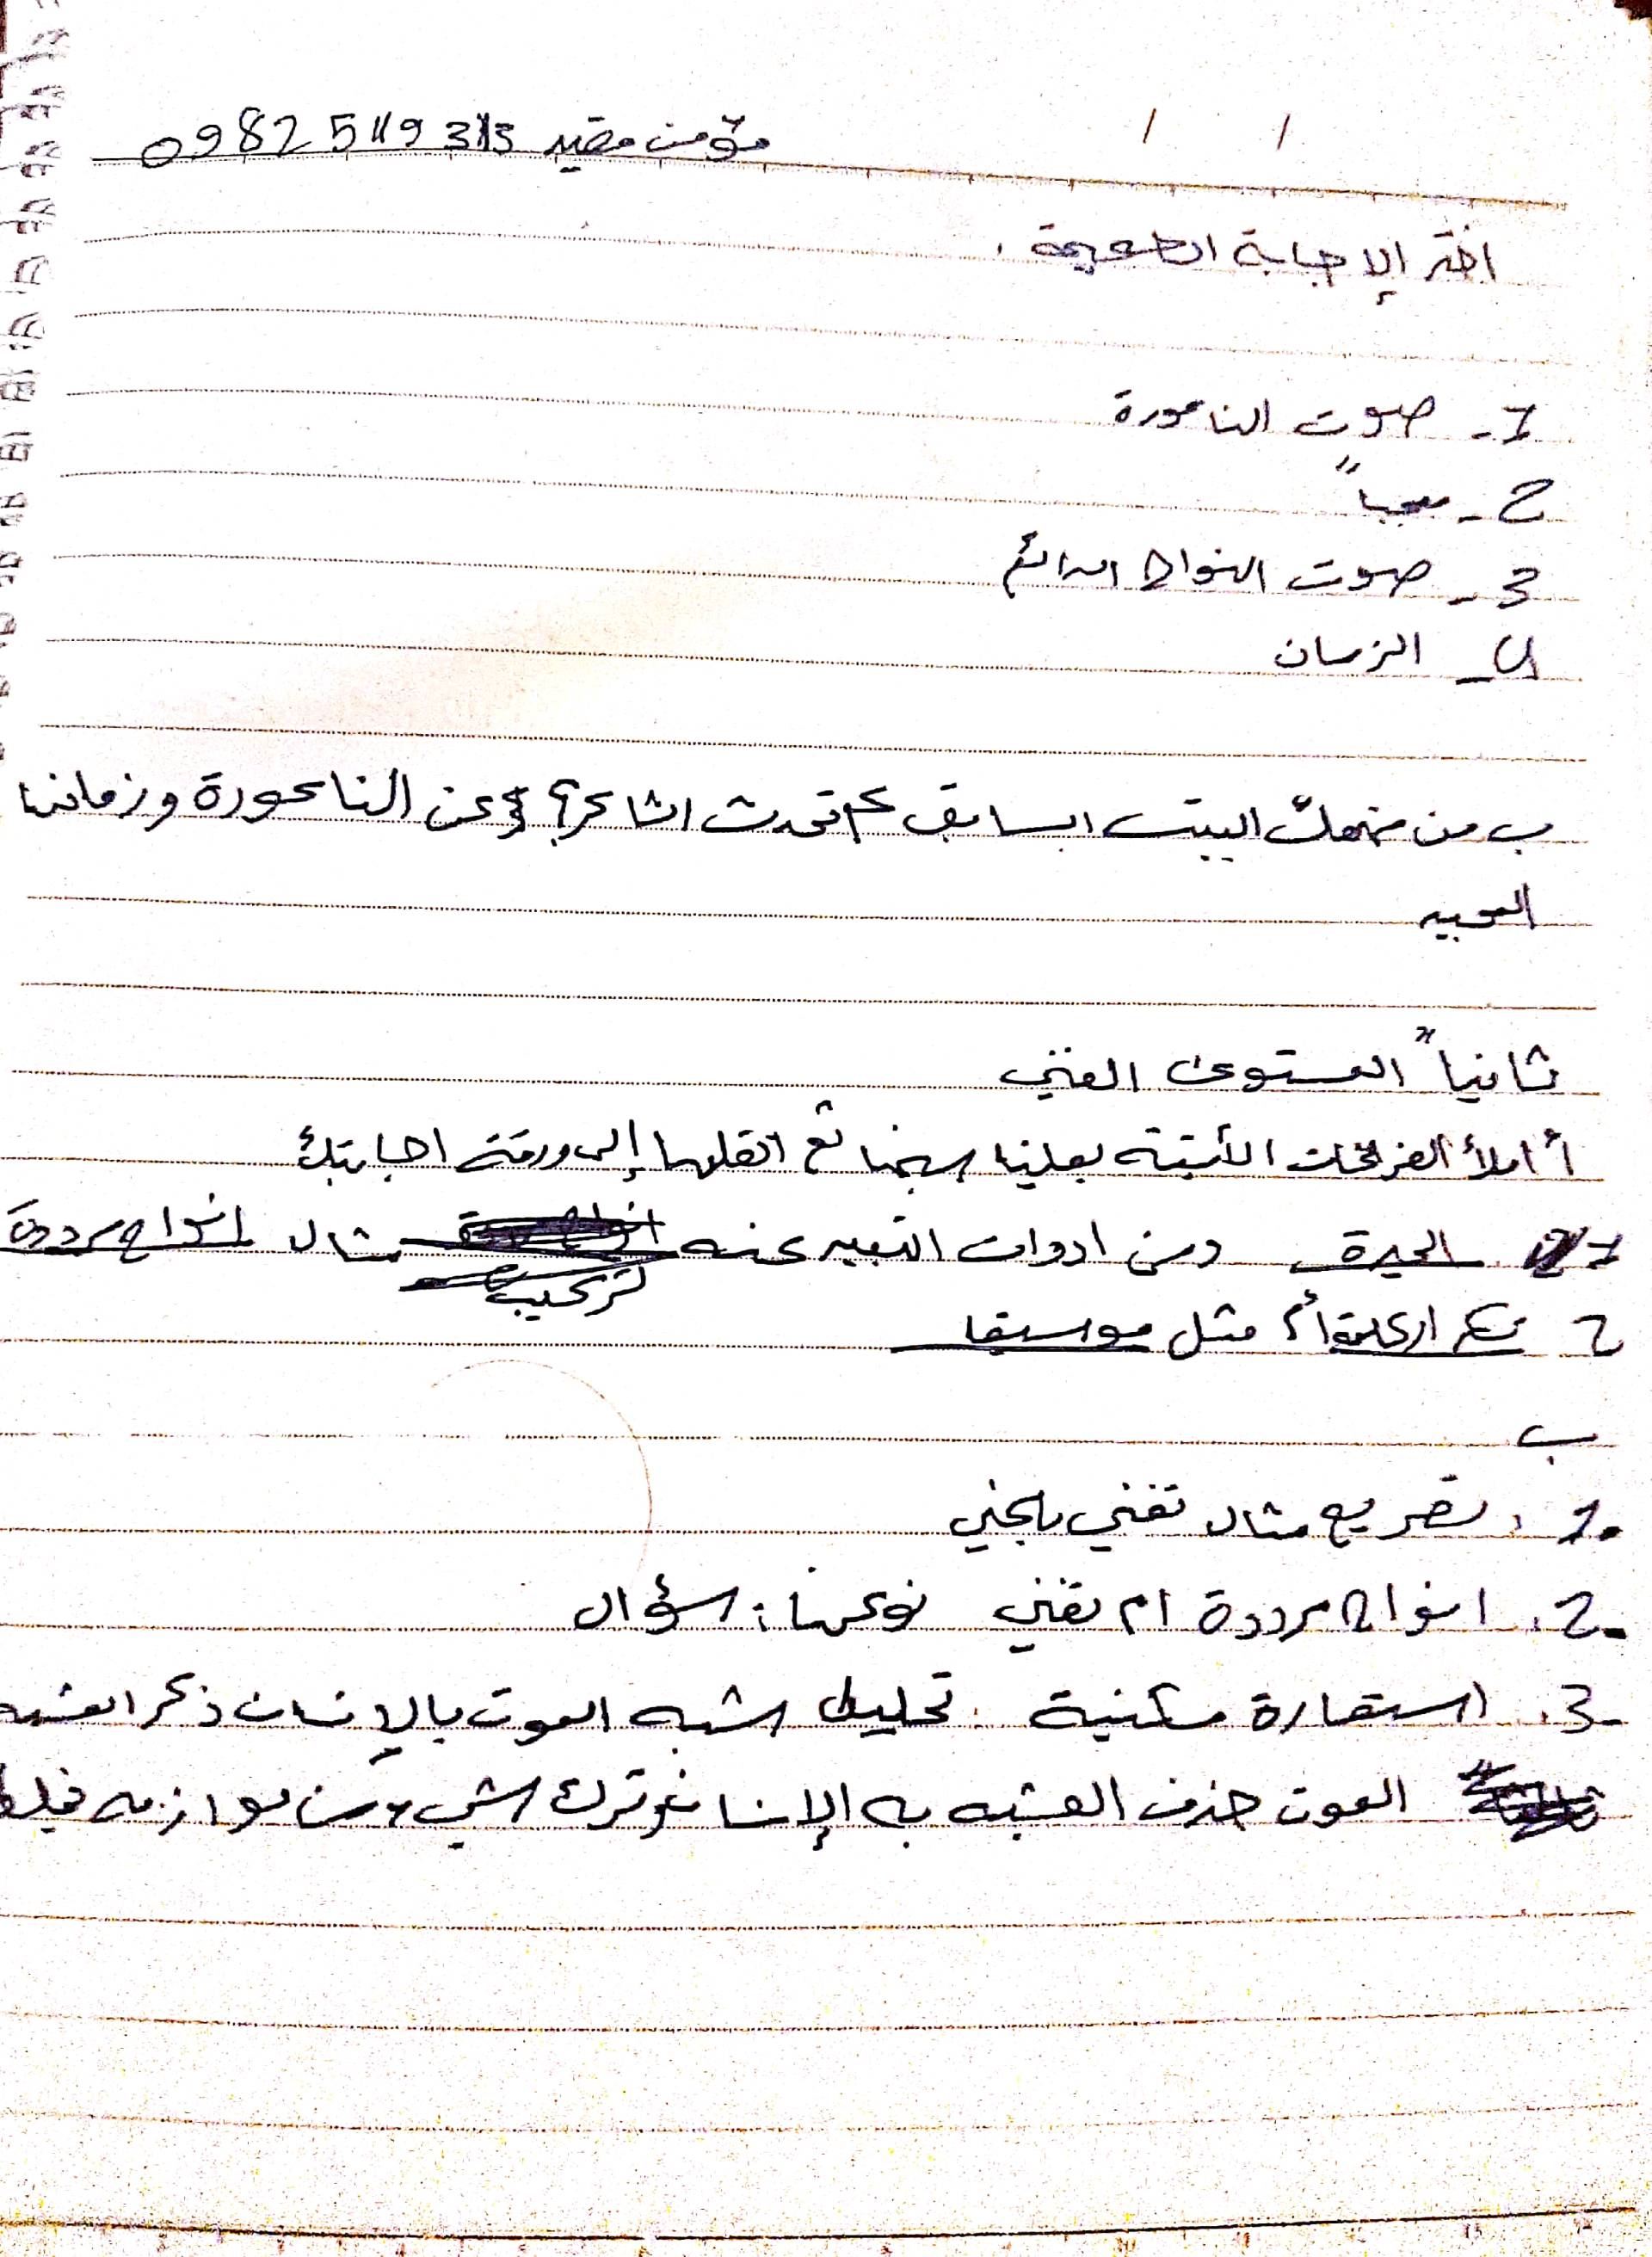 مؤمن مقيد 0982519313
اختر الإجابة الصحيحة .
1- صوت الناعورة
2- معجباً
3- صوت النواح الدائم
4- الزمان
ب من فهمك البيت السابق عم تحدث الشاعر؟ عن الناعورة وزمانها
العجيب
ثانياً المستوى الفني
أ املأ الفراغات الآتية بما يناسبها ثم انقلها إلى ورقة اجابتك
1 الحيرة ومن ادوات التعبير عنه تركيب مثال انواح مرددة
2 تكرار كلمة أم مثل موسيقا
ب
1. تصريع مثال تغني يجني
2. انواح مرددة ام تغني نوعها: سؤال
3. استعارة مكنية . تحليل شبه الصوت بالإنسان ذكر المشبه
الصوت حذف المشبه به الإنسان وترك شيء من لوازمه